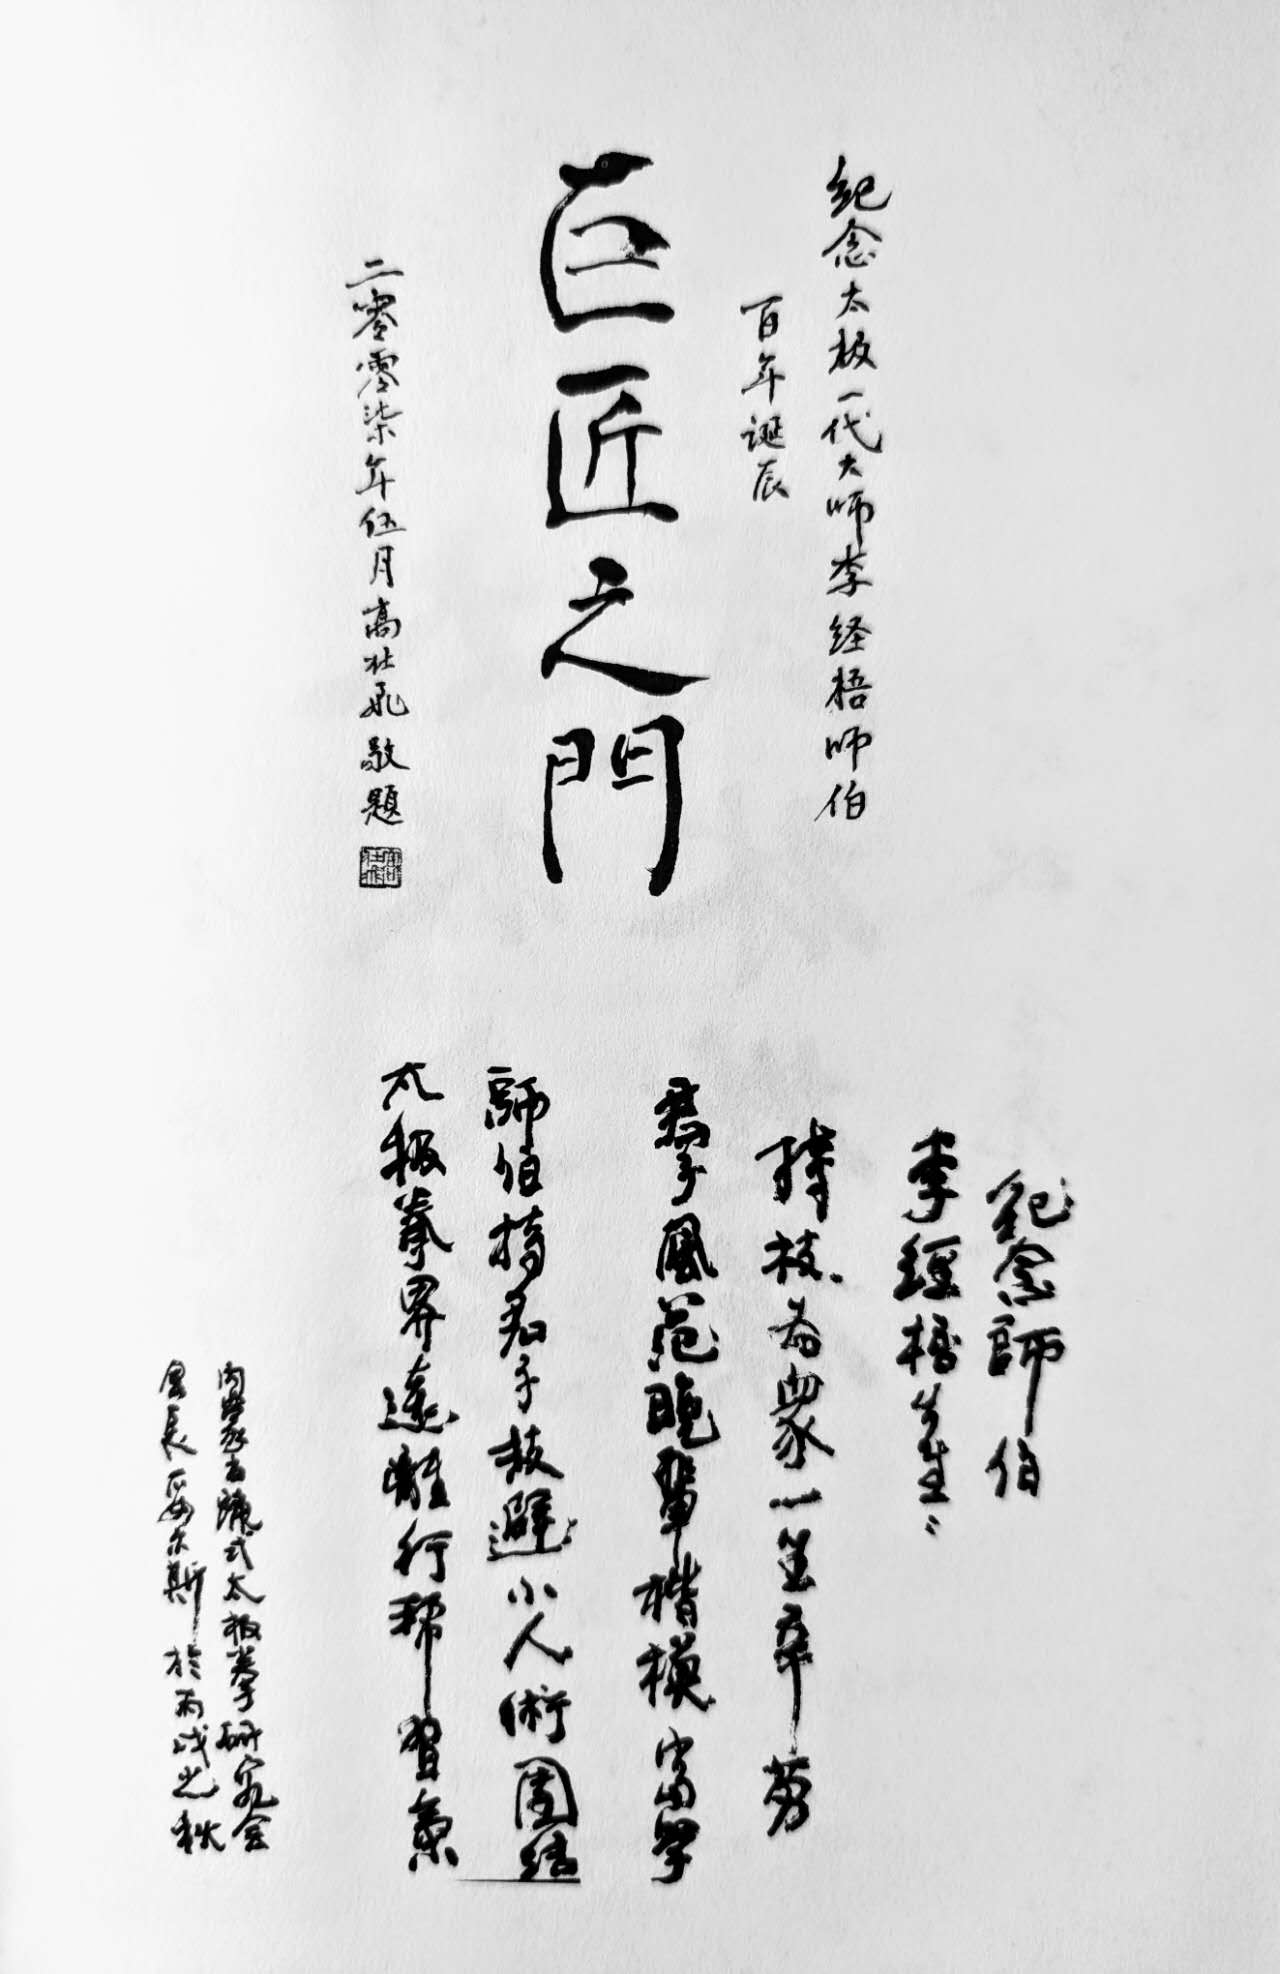 紀念太极一代大师李经梧师伯
百年诞辰
巨匠之門
二零零柒年伍月高壮飞敬题
紀念師伯
李經梧先生：
技為衆一生辛劳
拳風范晚輩楷模當學
師伯持君子技避小人術團結
太极拳界遠離行幫習氣
内家太極拳研究会
会長於丙戌之秋